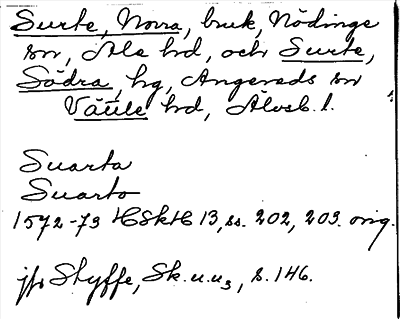 Surte, Norra, bruk, Nödinge
sn, Ale hd, och Surte,
Södra, hg, Angereds sn
Vättle hd, Älvsb. l.
Suarta
Suarto
1572-73 HSkH 13, ss. 202, 203. orig.
jfr Styffe, Sk. u. u3, s. 146.